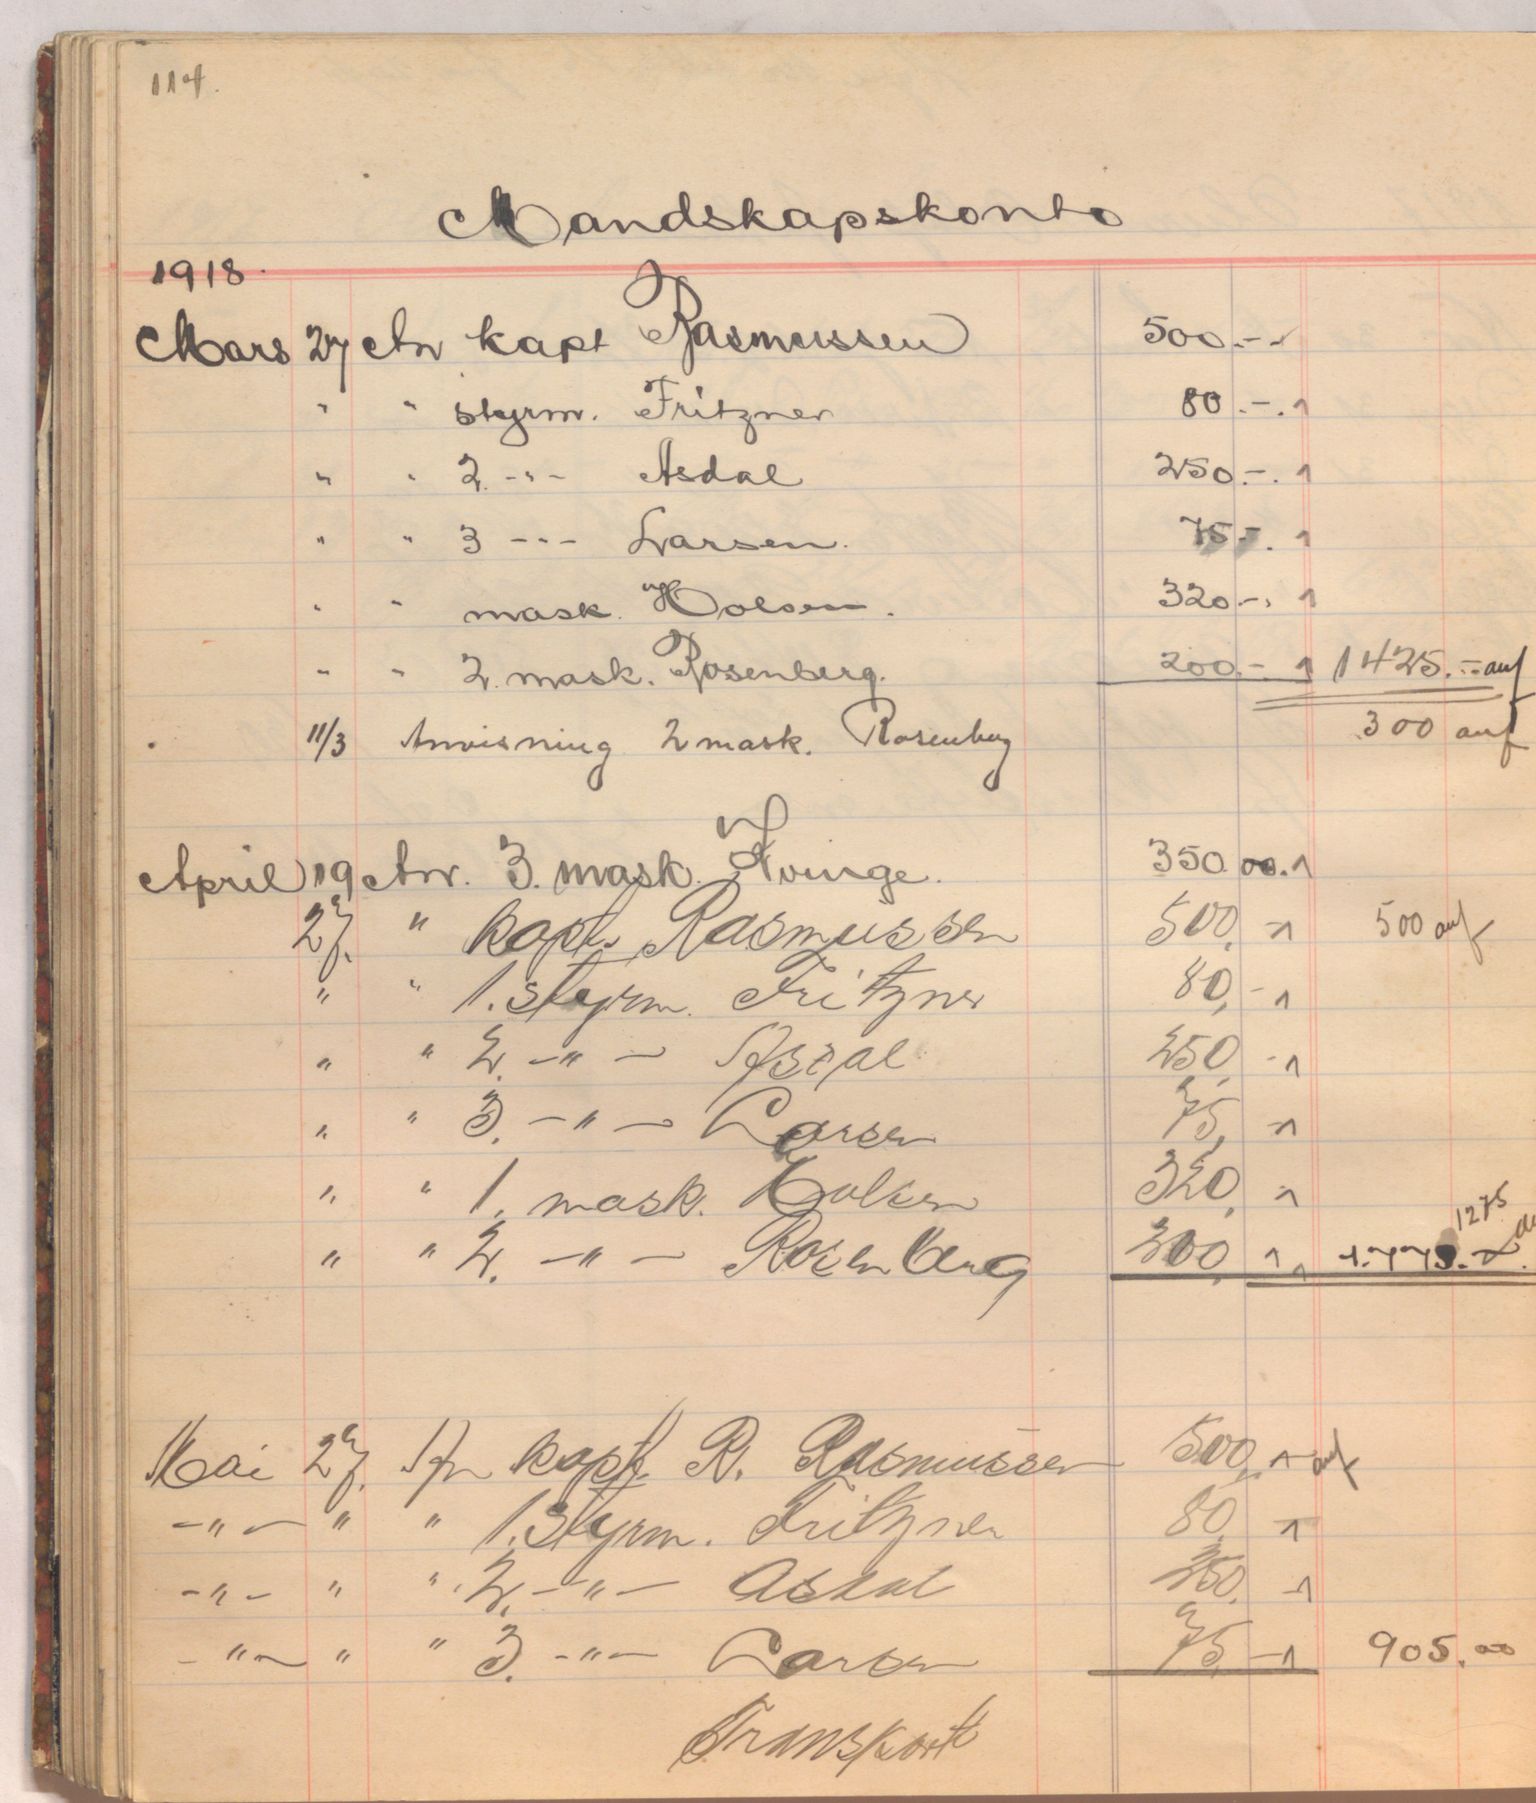 114.
Mandskapskonto
1918.
Mars 27 An kapt Rasmussen 500.--
" " styrm. Fritzner 80.-.
" " 2. -"- Asdal 250.-.
" " 3 -"- Larsen. 75-.
" " mask. Holsen. 320.-.
" " 2. mask. Rosenberg. 200.- 1425.-
11/3 Anvisning 2 mask. Rosenberg 300
April 19 Anv. 3. mask. Kvinge. 350.00.
27. " kapt. Rasmussen 500,- 500
" " 1. styrm. Fritzner 80,-
" " 2. -"- Asdal 250,-
" " 3. -"- Larsen 75,-
" " 1. mask. Holsen 320,-
1275
" " 2. -"- Rosenberg 200, 1.775.
Mai 27. An kapt. R. Rasmussen 500,-
-"- " " 1. styrm. Fritzner 80,-
-"- " " 2. -"- Asdal 250,-
-"- " " 3. -"- Larsen 75,- 905.00
Transport